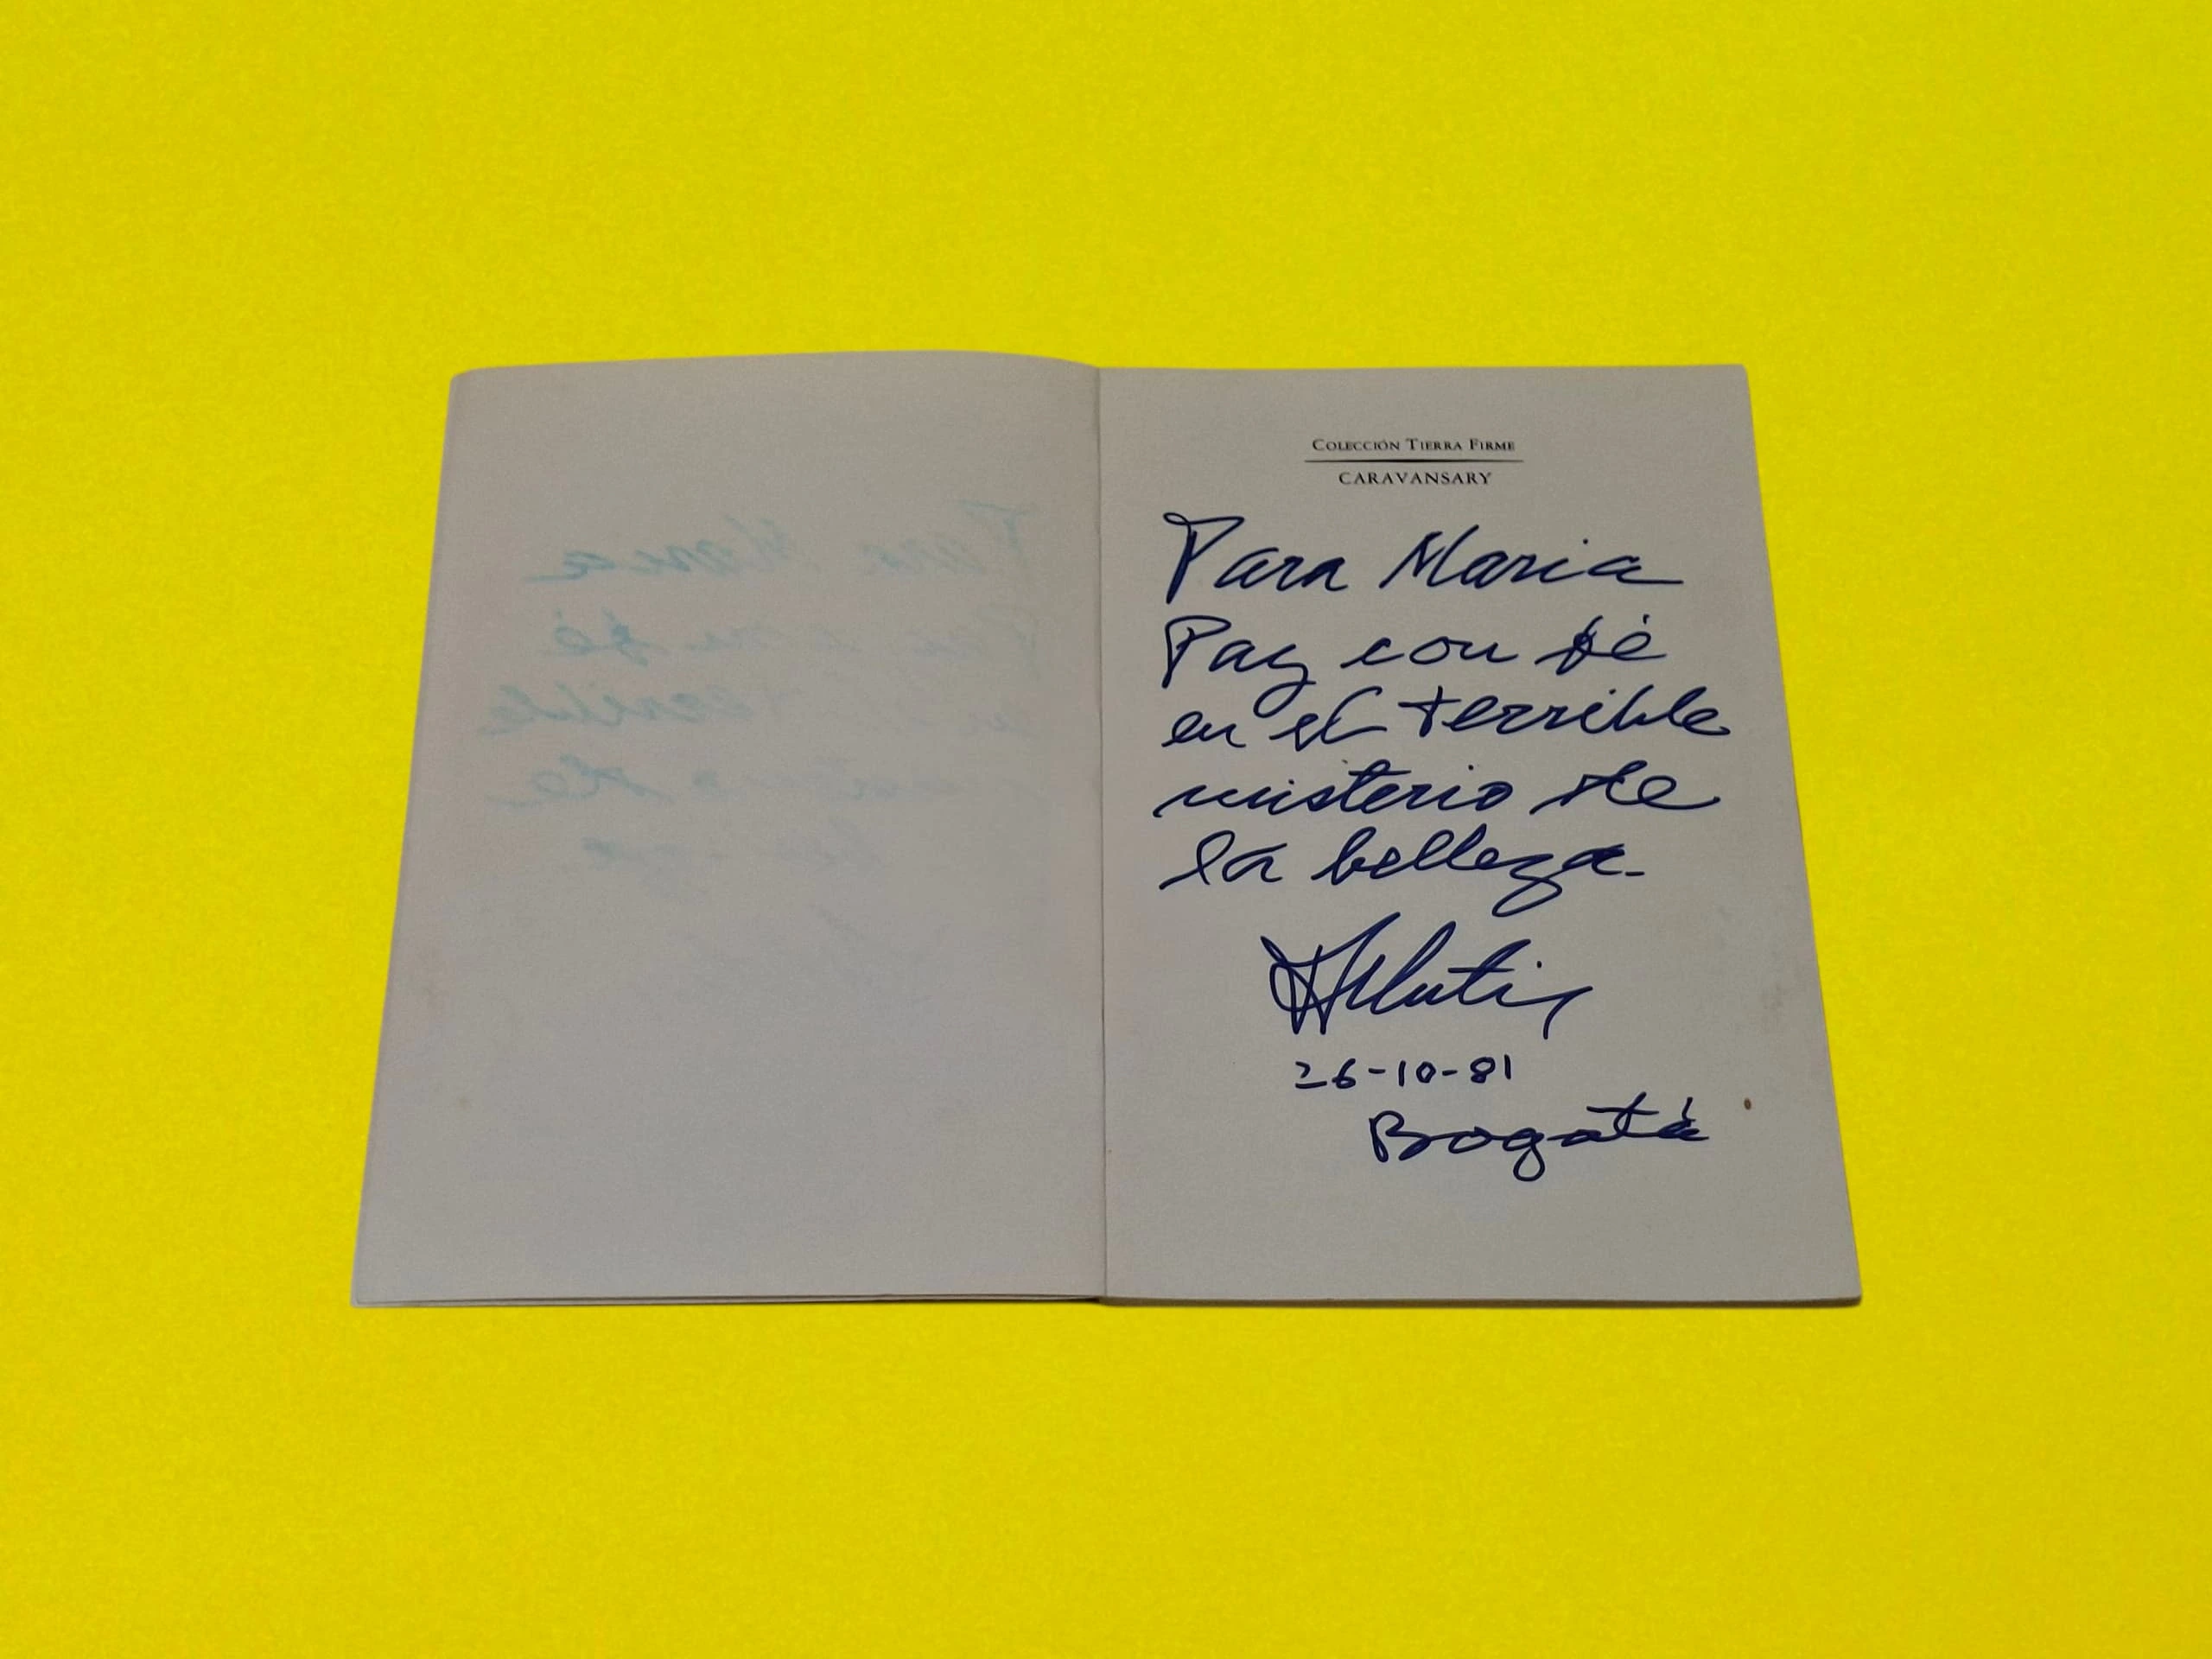 COLECCIÓN TIERRA FIRME
CARAVANSARY
Para Maria
Paz con fé
en el terrible
misterio de
la belleza.
AMutis
26-10-81
Bogotá